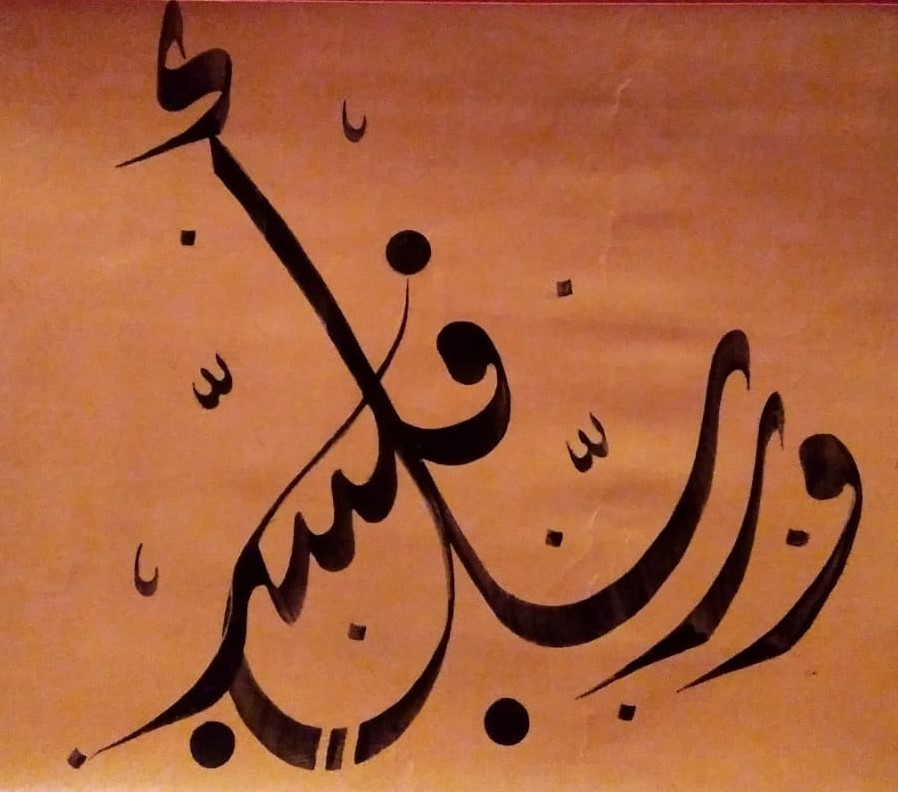 وربّك فكبّر